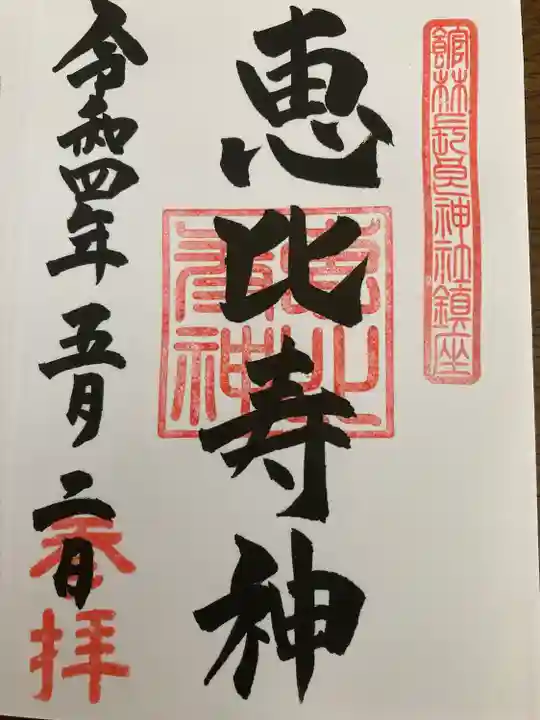 館林長良神社鎮座
恵比寿神
恵比寿神
令和四年五月二日
奉拝